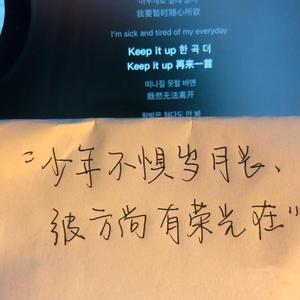 我要暂时随心所欲
I'm sick and tired of my everyday
Keep it up 한 곡 더
Keep it up 再来一首
떠나질 못할 바엔
既然无法离开
창밖은 쳐다도 안 봐
“少年不惧岁月长、
彼方尚有荣光在”